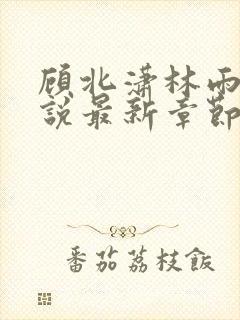 顾北潇林雨
說最新章節
番茄荔枝飯